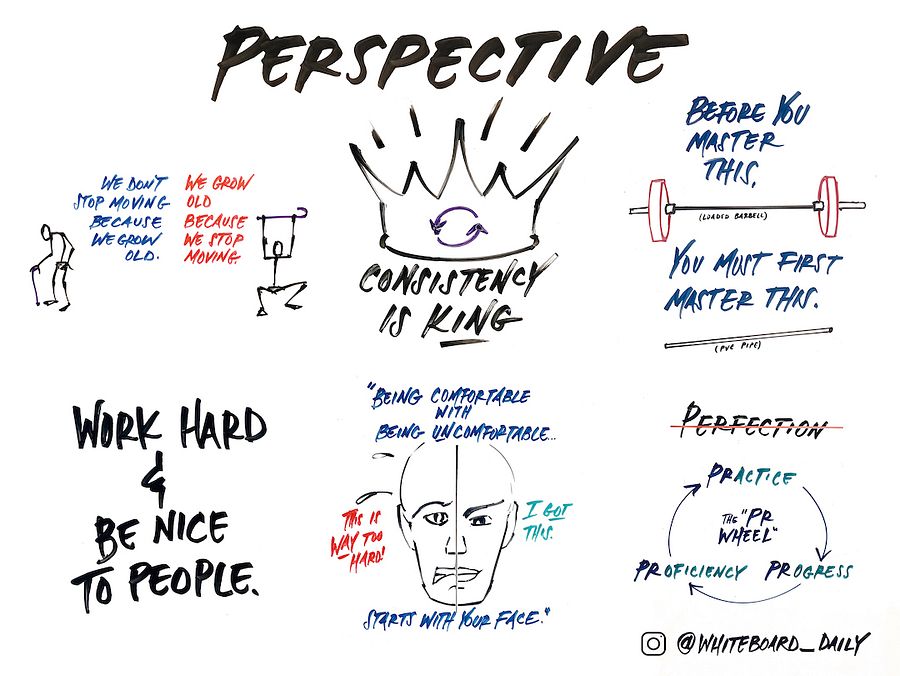 PERSPECTIVE
WE DON'T
STOP MOVING
BECAUSE
WE GROW
OLD.
WE GROW
OLD
BECAUSE
WE STOP
MOVING.
CONSISTENCY
IS KING
BEFORE YOU
MASTER
THIS,
(LOADED BARBELL)
YOU MUST FIRST
MASTER THIS.
(PVC PIPE)
WORK HARD
&
BE NICE
TO PEOPLE.
"BEING COMFORTABLE
WITH
BEING UNCOMFORTABLE...
THIS IS
WAY TOO
HARD!
I GOT
THIS.
STARTS WITH YOUR FACE."
PERFECTION
PRACTICE
THE "PR
WHEEL"
PROFICIENCY PROGRESS
@WHITEBOARD_DAILY